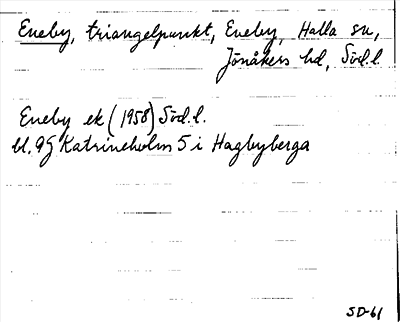 Eneby, triangelpunkt, Eneby, Halla sn,
Jönåkers hd, Söd.l
Eneby ek (1958) Söd.l.
bl. 9G Katrineholm 5 i Hagbyberga
SD-61